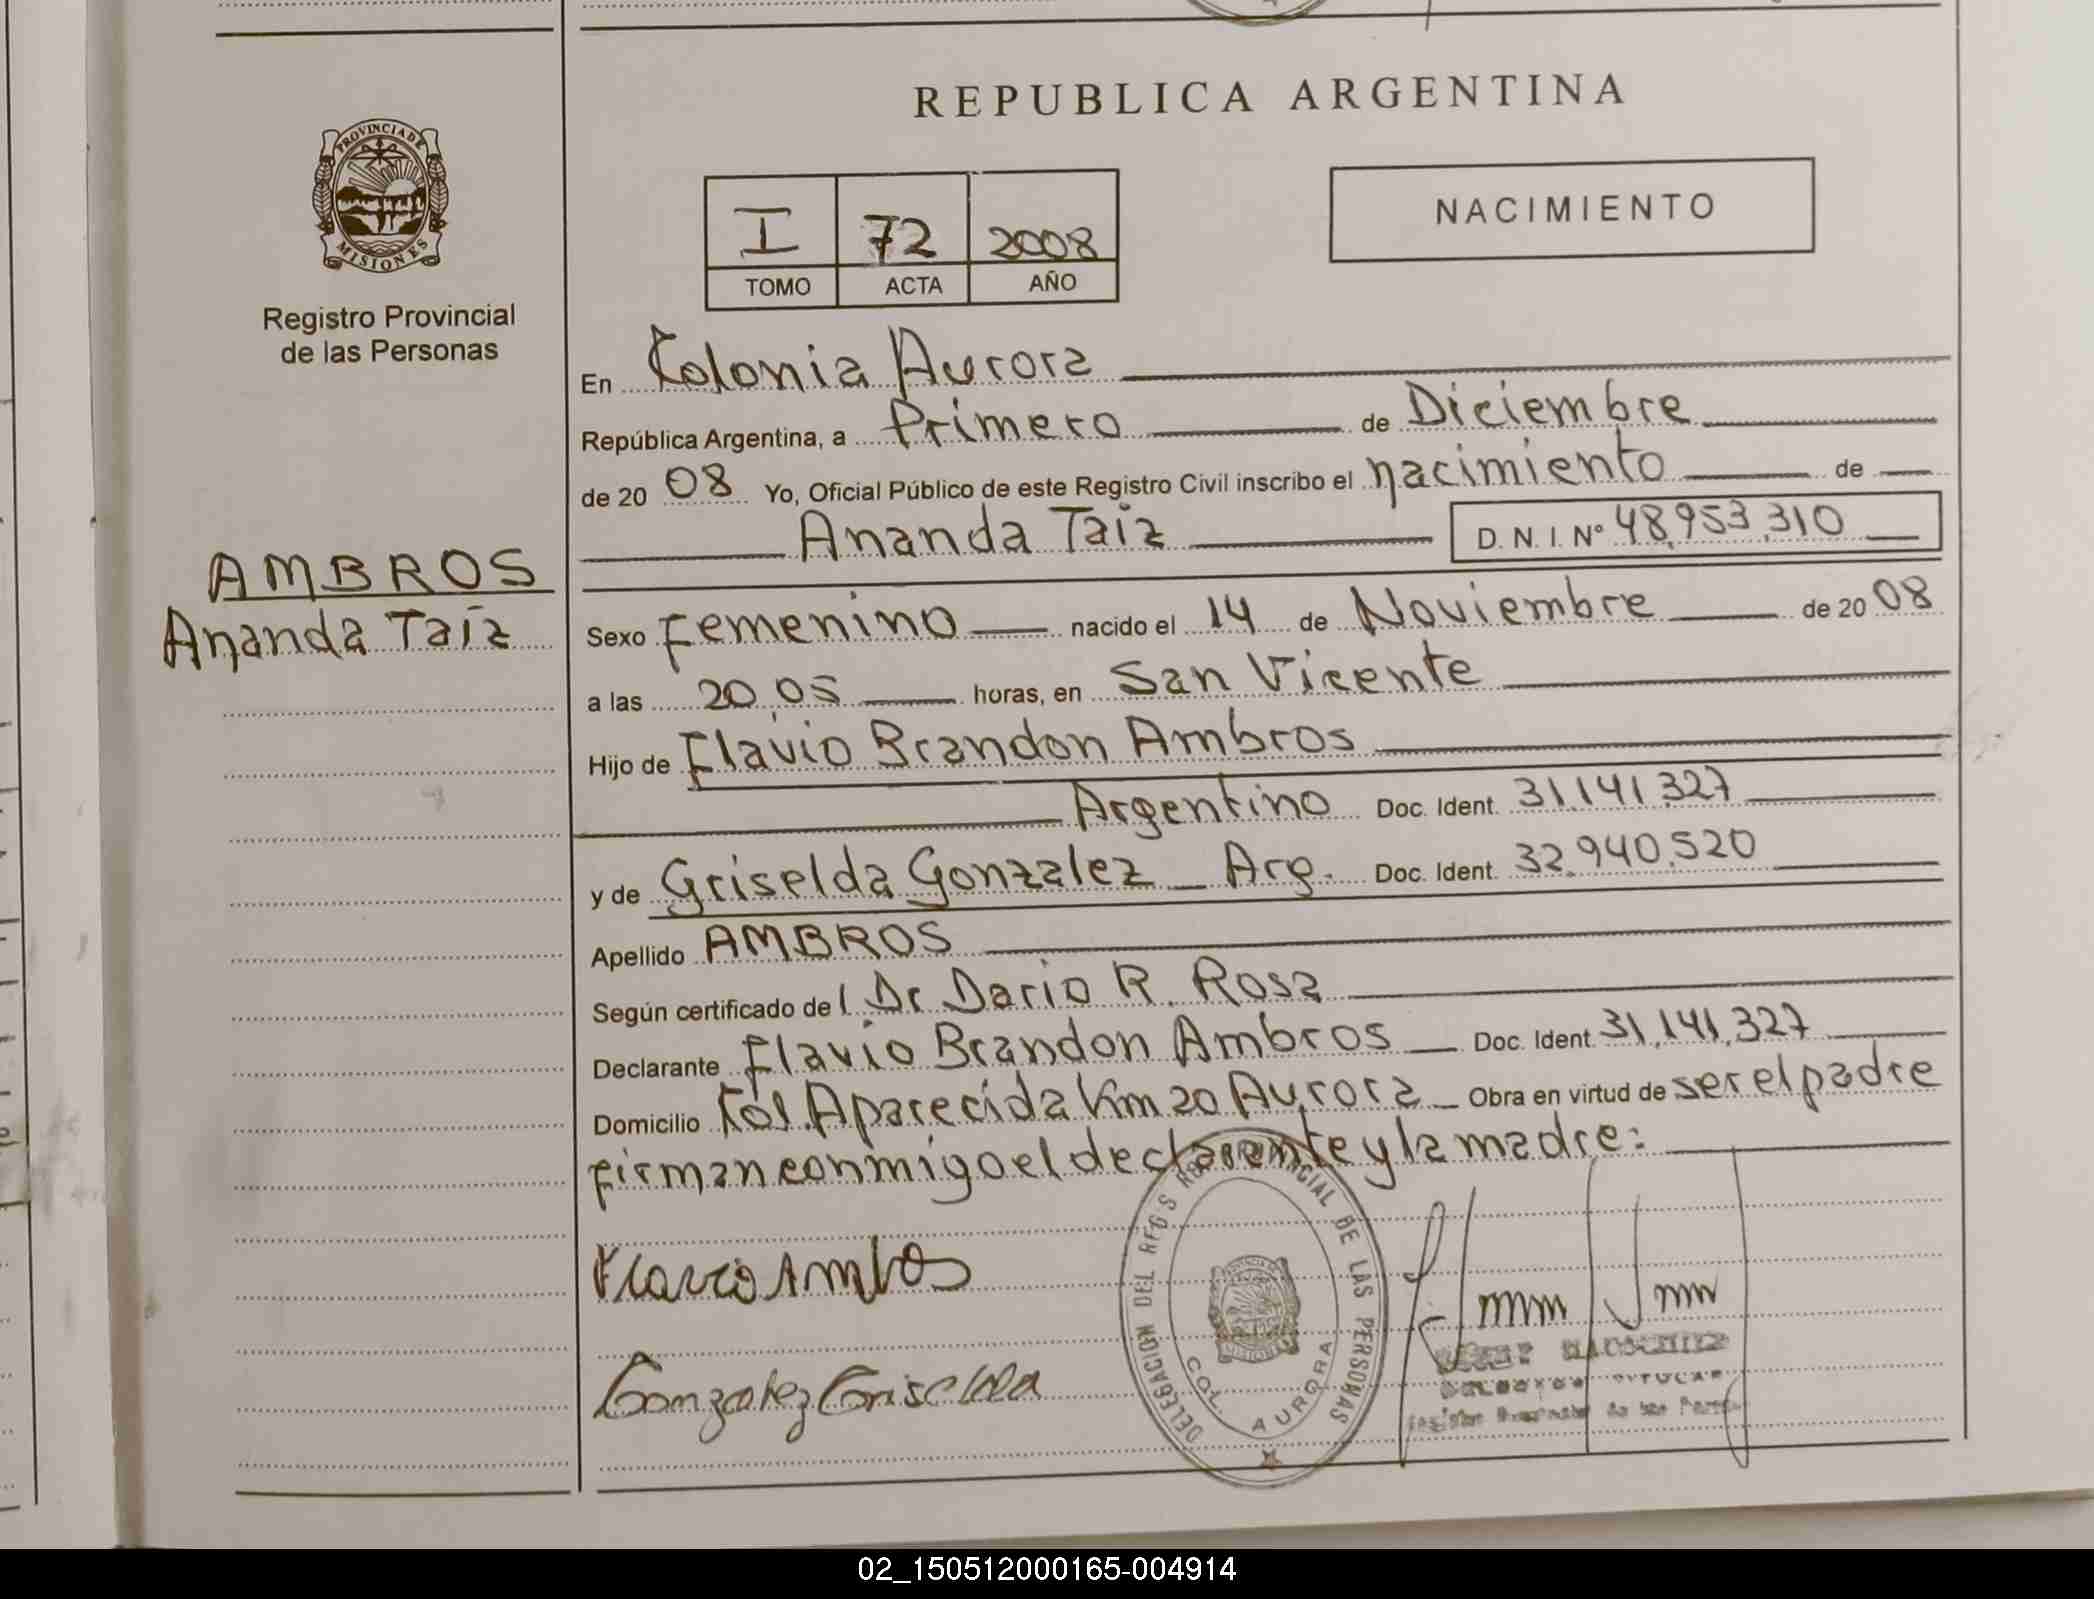 REPUBLICA ARGENTINA
PROVINCIA DE
MISIONES
Registro Provincial
de las Personas
NACIMIENTO
I 72 2008
TOMO ACTA AÑO
En Kolonia Aurora
República Argentina, a Primero de Diciembre
de 20 08 Yo, Oficial Público de este Registro Civil inscribo el nacimiento de
Ananda Taiz D.N.I. Nº 48.953.310
AMBROS
Ananda Taiz
Sexo Femenino nacido el 14 de Noviembre de 20 08
a las 20,05 horas, en San Vicente
Hijo de Flavio Brandon Ambros
Argentino Doc. Ident. 31.141.327
y de Griselda Gonzalez _ Arg. Doc. Ident. 32.940.520
Apellido AMBROS
Según certificado del Dr Dario R. Rosa
Declarante Flavio Brandon Ambros Doc. Ident. 31.141.327
Domicilio Kol. Aparecida Km 20 Aurora _ Obra en virtud de ser el padre
firman conmigo el declarante y la madre:
Flavio Ambros
Gonzalez Griselda
DELEGACION DEL REG. PROVINCIAL DE LAS PERSONAS
COL. AURORA
02_150512000165-004914